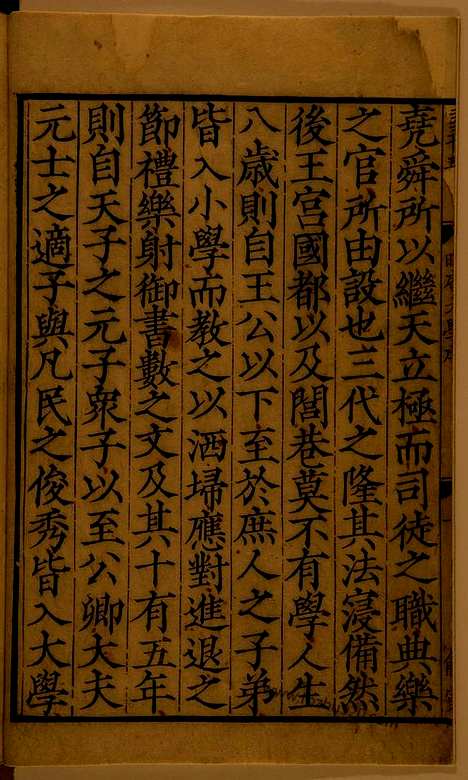 堯舜所以繼天立極而司徒之職典樂
之官所由設也三代之隆其法寖備然
後王宮國都以及閭巷莫不有學人生
八歳則自王公以下至於庶人之子弟
皆入小學而教之以洒埽應對進退之
節禮樂射御書數之文及其十有五年
則自天子之元子衆子以至公卿大夫
元士之適子與凡民之俊秀皆入大學